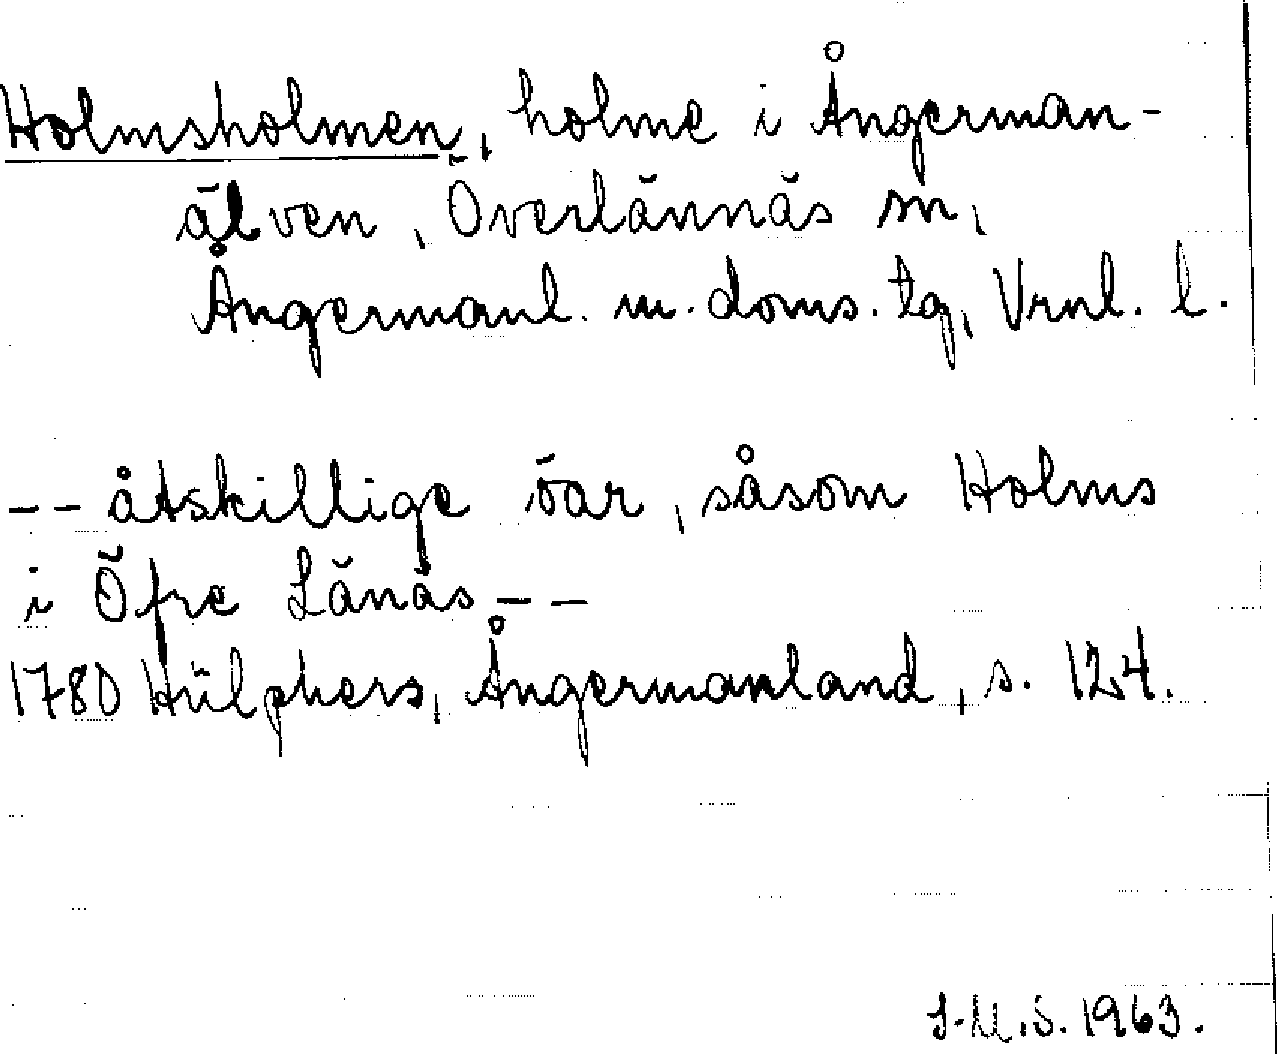 Holmsholmen, holme i Ångerman-
älven, Överlännäs sn,
Ångermanl. m. doms. tg, Vrnl. l.
-- åtskillige öar, såsom Holms
i Öfre Länäs --
1780 Hülphers, Ångermanland, s. 124.
J.U.S. 1963.